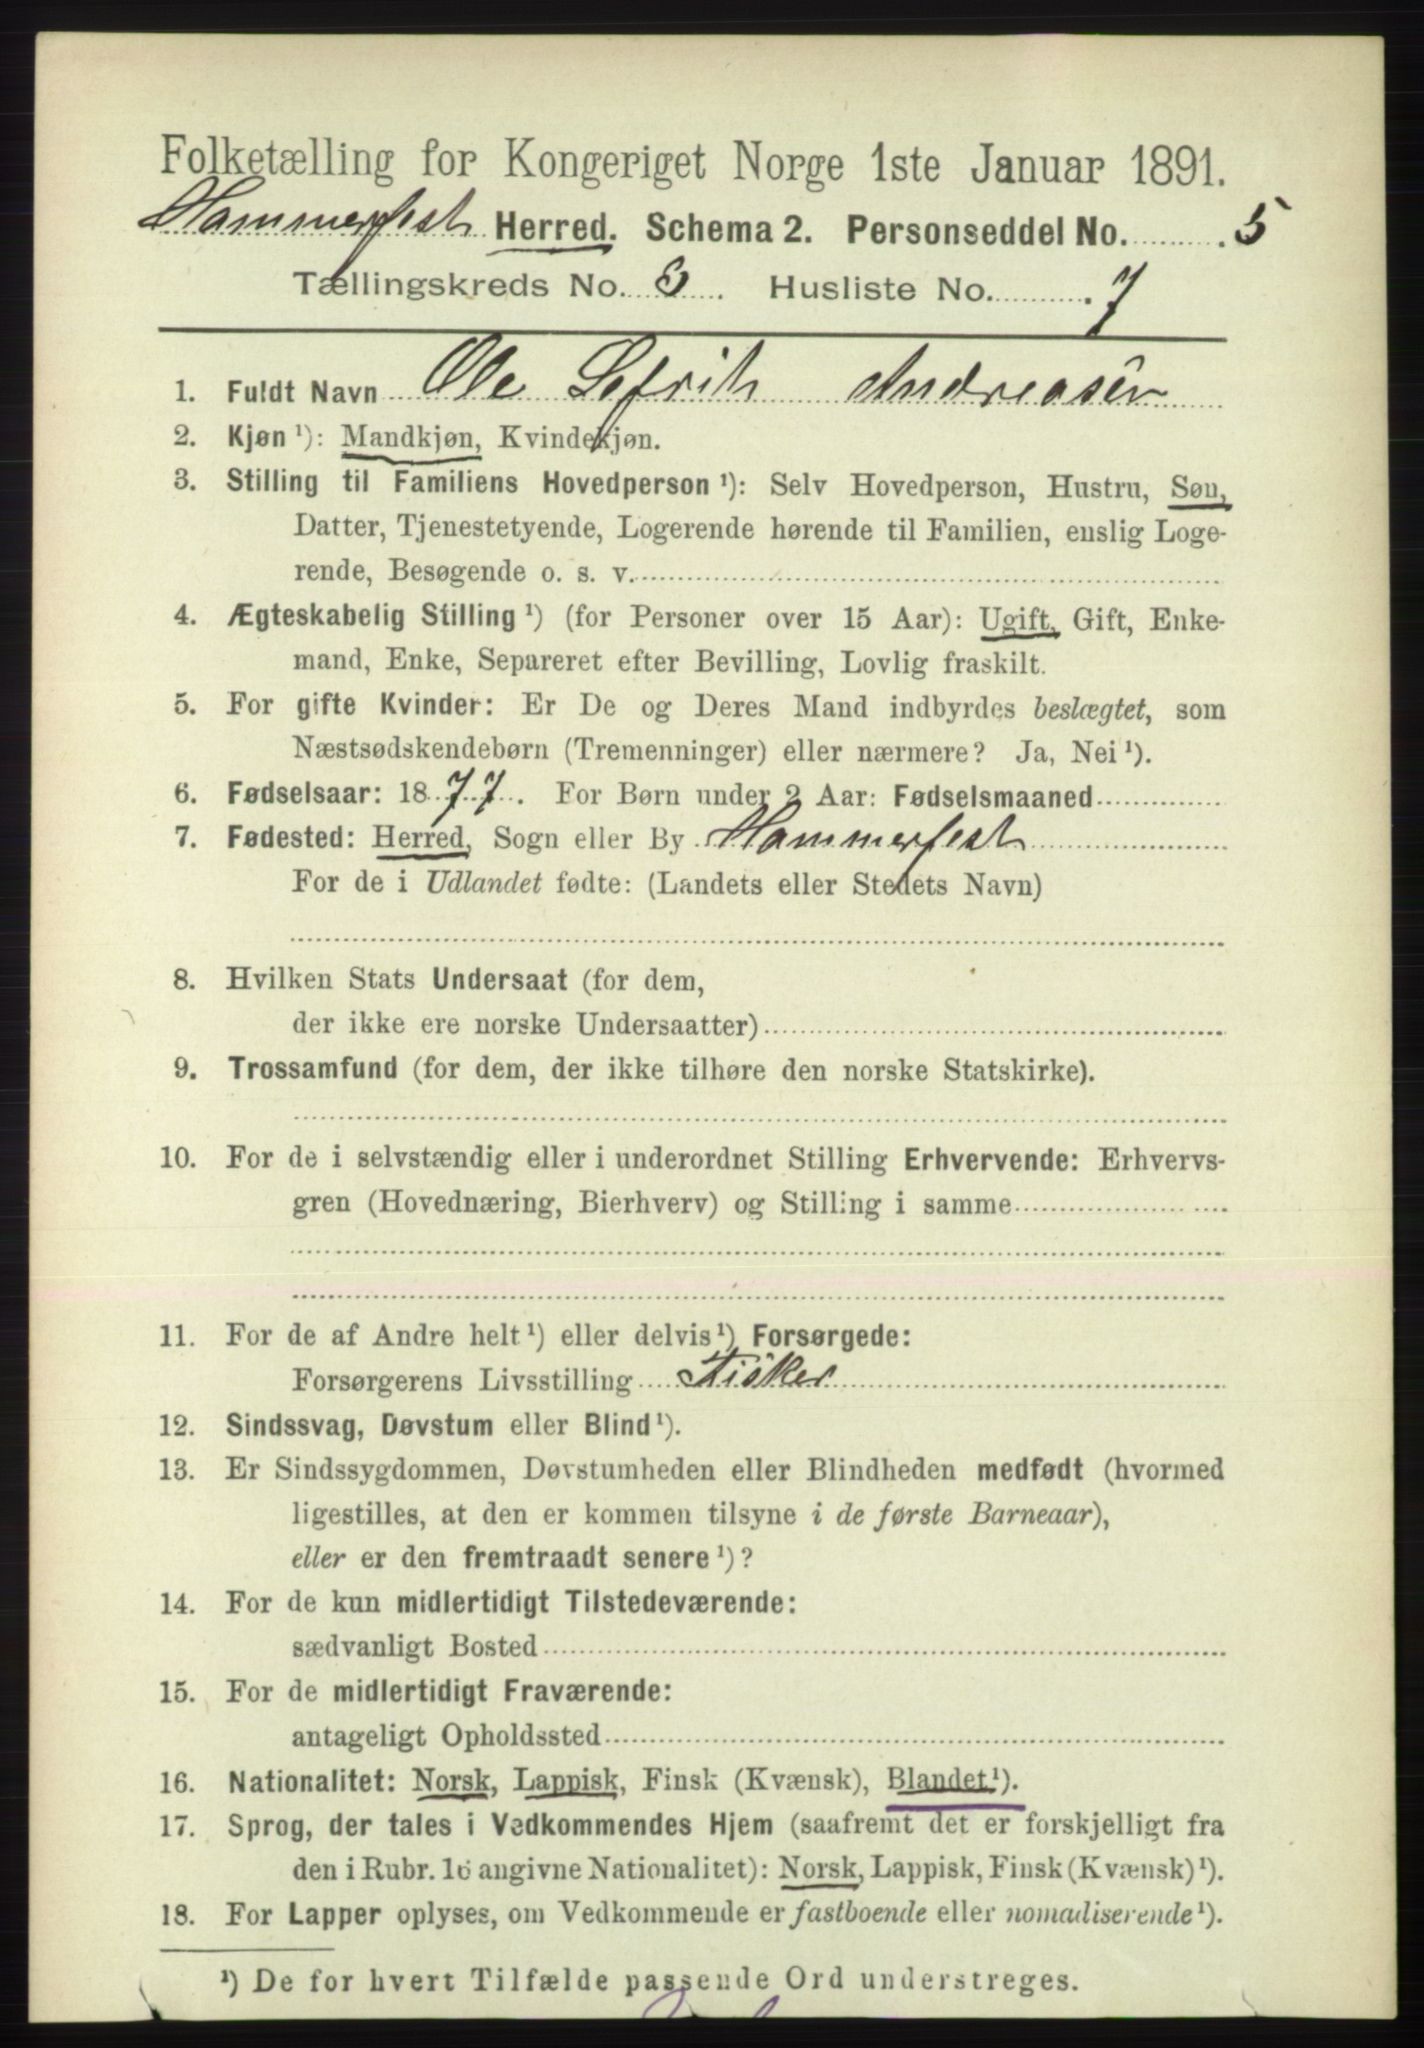 Folketælling for Kongeriget Norge 1ste Januar 1891.
Hammerfest Herred. Schema 2. Personseddel No. 5
Tællingskreds No. 3. Husliste No. 7
1. Fuldt Navn Ole Sefrik Andreasen
2. Kjøn ¹): Mandkjøn, Kvindekjøn.
3. Stilling til Familiens Hovedperson ¹): Selv Hovedperson, Hustru, Søn,
Datter, Tjenestetyende, Logerende hørende til Familien, enslig Loge-
rende, Besøgende o. s. v.
4. Ægteskabelig Stilling ¹) (for Personer over 15 Aar): Ugift, Gift, Enke-
mand, Enke, Separeret efter Bevilling, Lovlig fraskilt.
5. For gifte Kvinder: Er De og Deres Mand indbyrdes beslægtet, som
Næstsødskendebørn (Tremenninger) eller nærmere? Ja, Nei ¹).
6. Fødselsaar: 1877. For Børn under 2 Aar: Fødselsmaaned
7. Fødested: Herred, Sogn eller By Hammerfest
For de i Udlandet fødte: (Landets eller Stedets Navn)
8. Hvilken Stats Undersaat (for dem,
der ikke ere norske Undersaatter)
9. Trossamfund (for dem, der ikke tilhøre den norske Statskirke).
10. For de i selvstændig eller i underordnet Stilling Erhvervende: Erhvervs-
gren (Hovednæring, Bierhverv) og Stilling i samme
11. For de af Andre helt ¹) eller delvis ¹) Forsørgede:
Forsørgerens Livsstilling Fisker
12. Sindssvag, Døvstum eller Blind ¹).
13. Er Sindssygdommen, Døvstumheden eller Blindheden medfødt (hvormed
ligestilles, at den er kommen tilsyne i de første Barneaar),
eller er den fremtraadt senere ¹)?
14. For de kun midlertidigt Tilstedeværende:
sædvanligt Bosted
15. For de midlertidigt Fraværende:
antageligt Opholdssted
16. Nationalitet: Norsk, Lappisk, Finsk (Kvænsk), Blandet ¹).
17. Sprog, der tales i Vedkommendes Hjem (saafremt det er forskjelligt fra
den i Rubr. 16 angivne Nationalitet): Norsk, Lappisk, Finsk (Kvænsk) ¹).
18. For Lapper oplyses, om Vedkommende er fastboende eller nomadiserende ¹).
¹) De for hvert Tilfælde passende Ord understreges.